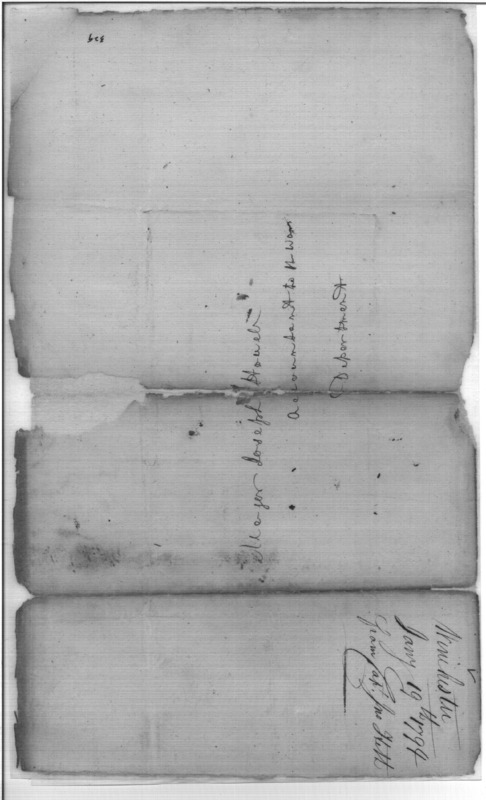 Major Joseph Howell
accountant to the War
Department
Winchester
Jany 19th 1794
from